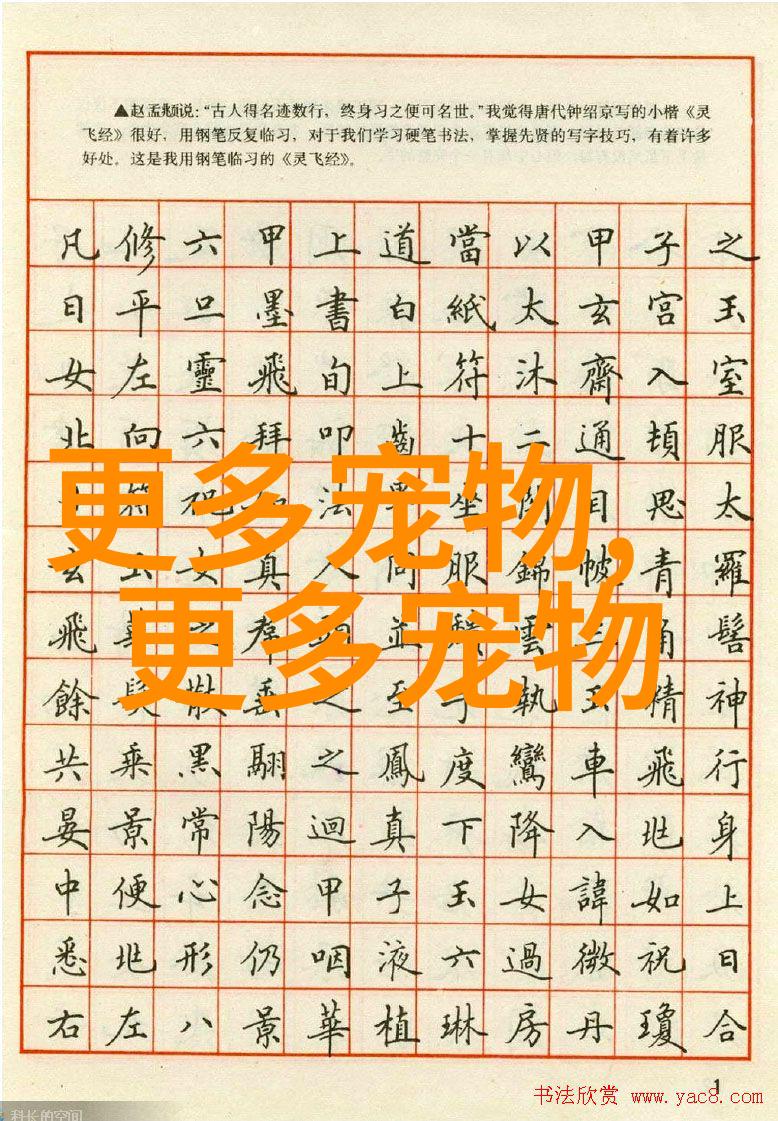 ▲赵孟頫说：“古人得名迹数行，终身习之便可名世。”我觉得唐代钟绍京写的小楷《灵
飞经》很好，用钢笔反复临习，对于我们学习硬笔书法，掌握先贤的写字技巧，有着许多
好处。这是我用钢笔临习的《灵飞经》。
凡修六甲上道當以甲子之
日平旦墨書白紙太玄宮玉
女左靈飛旬上符沐齋入室
北向六拜叩齒十二通頓服
符祝如法畢坐閉目思太
玄玉女真人同服錦帔青羅
飛華之並雲三角髻
餘髮散垂之至于執玉精神
共乘黑翮之鳳度鸞車飛行
晏景常陽迴真下降入兆身
中便心念甲子玉女諱如上
悉兆形仍咽液六過微祝日
右左八景華植琳房丹瓊合
更多宠物,
更多宠物
1
书法欣赏 www.yac8.com
科长的空间